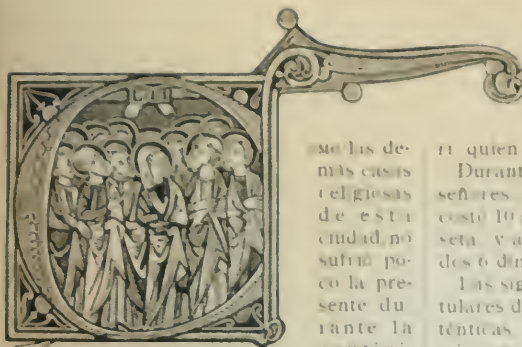 MO las de-
más casas
religiosas
de esta
ciudad, no
sufrió po-
co la pre-
sente du
rante la
ri quien
Durant
señores
costó 10
seta y a
Las sig
tulares d
ténticas